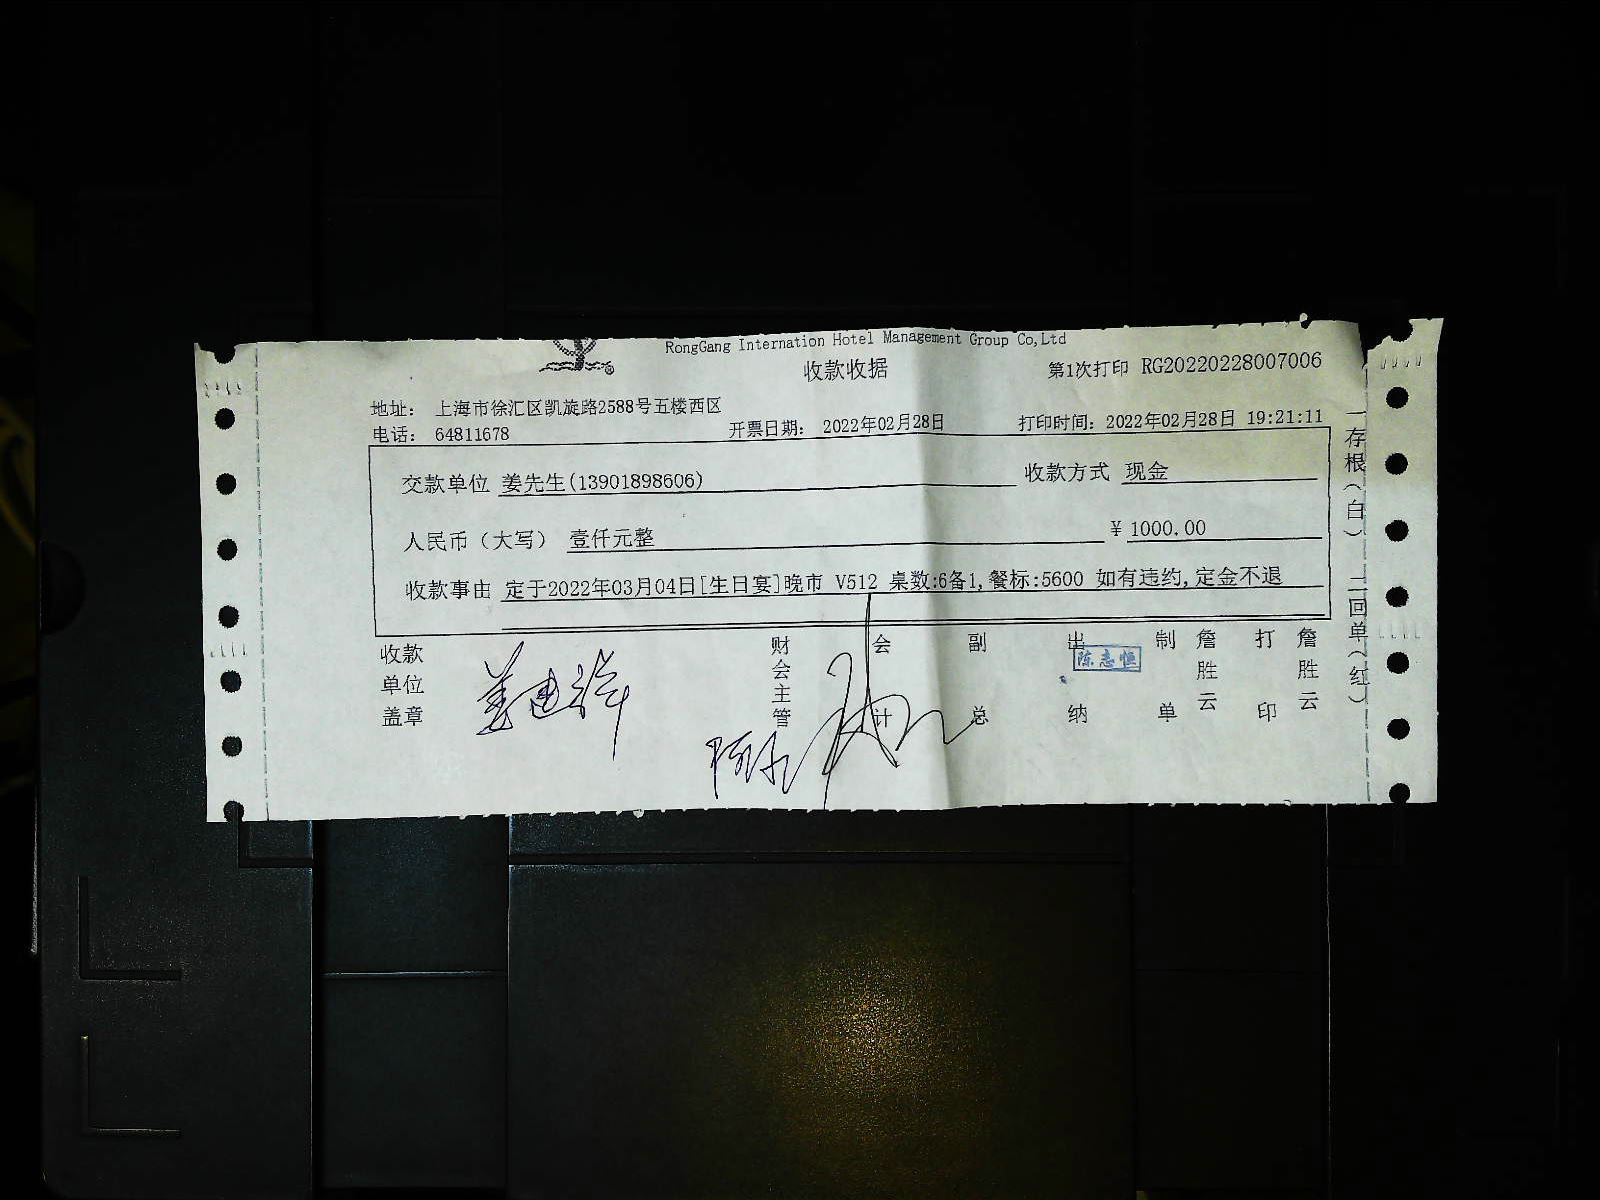 RongGang Internation Hotel Management Group Co,Ltd
收款收据
第1次打印 RG20220228007006
地址： 上海市徐汇区凯旋路2588号五楼西区
电话： 64811678 开票日期： 2022年02月28日 打印时间：2022年02月28日 19:21:11
交款单位 姜先生(13901898606) 收款方式 现金
人民币（大写） 壹仟元整 ￥1000.00
收款事由 定于2022年03月04日[生日宴]晚市 V512 桌数:6备1,餐标:5600 如有违约,定金不退
收款单位盖章
财会主管
会计
副总
出纳
陈志恒
制单 詹胜云
打印 詹胜云
一存根（白） 二回单（红）